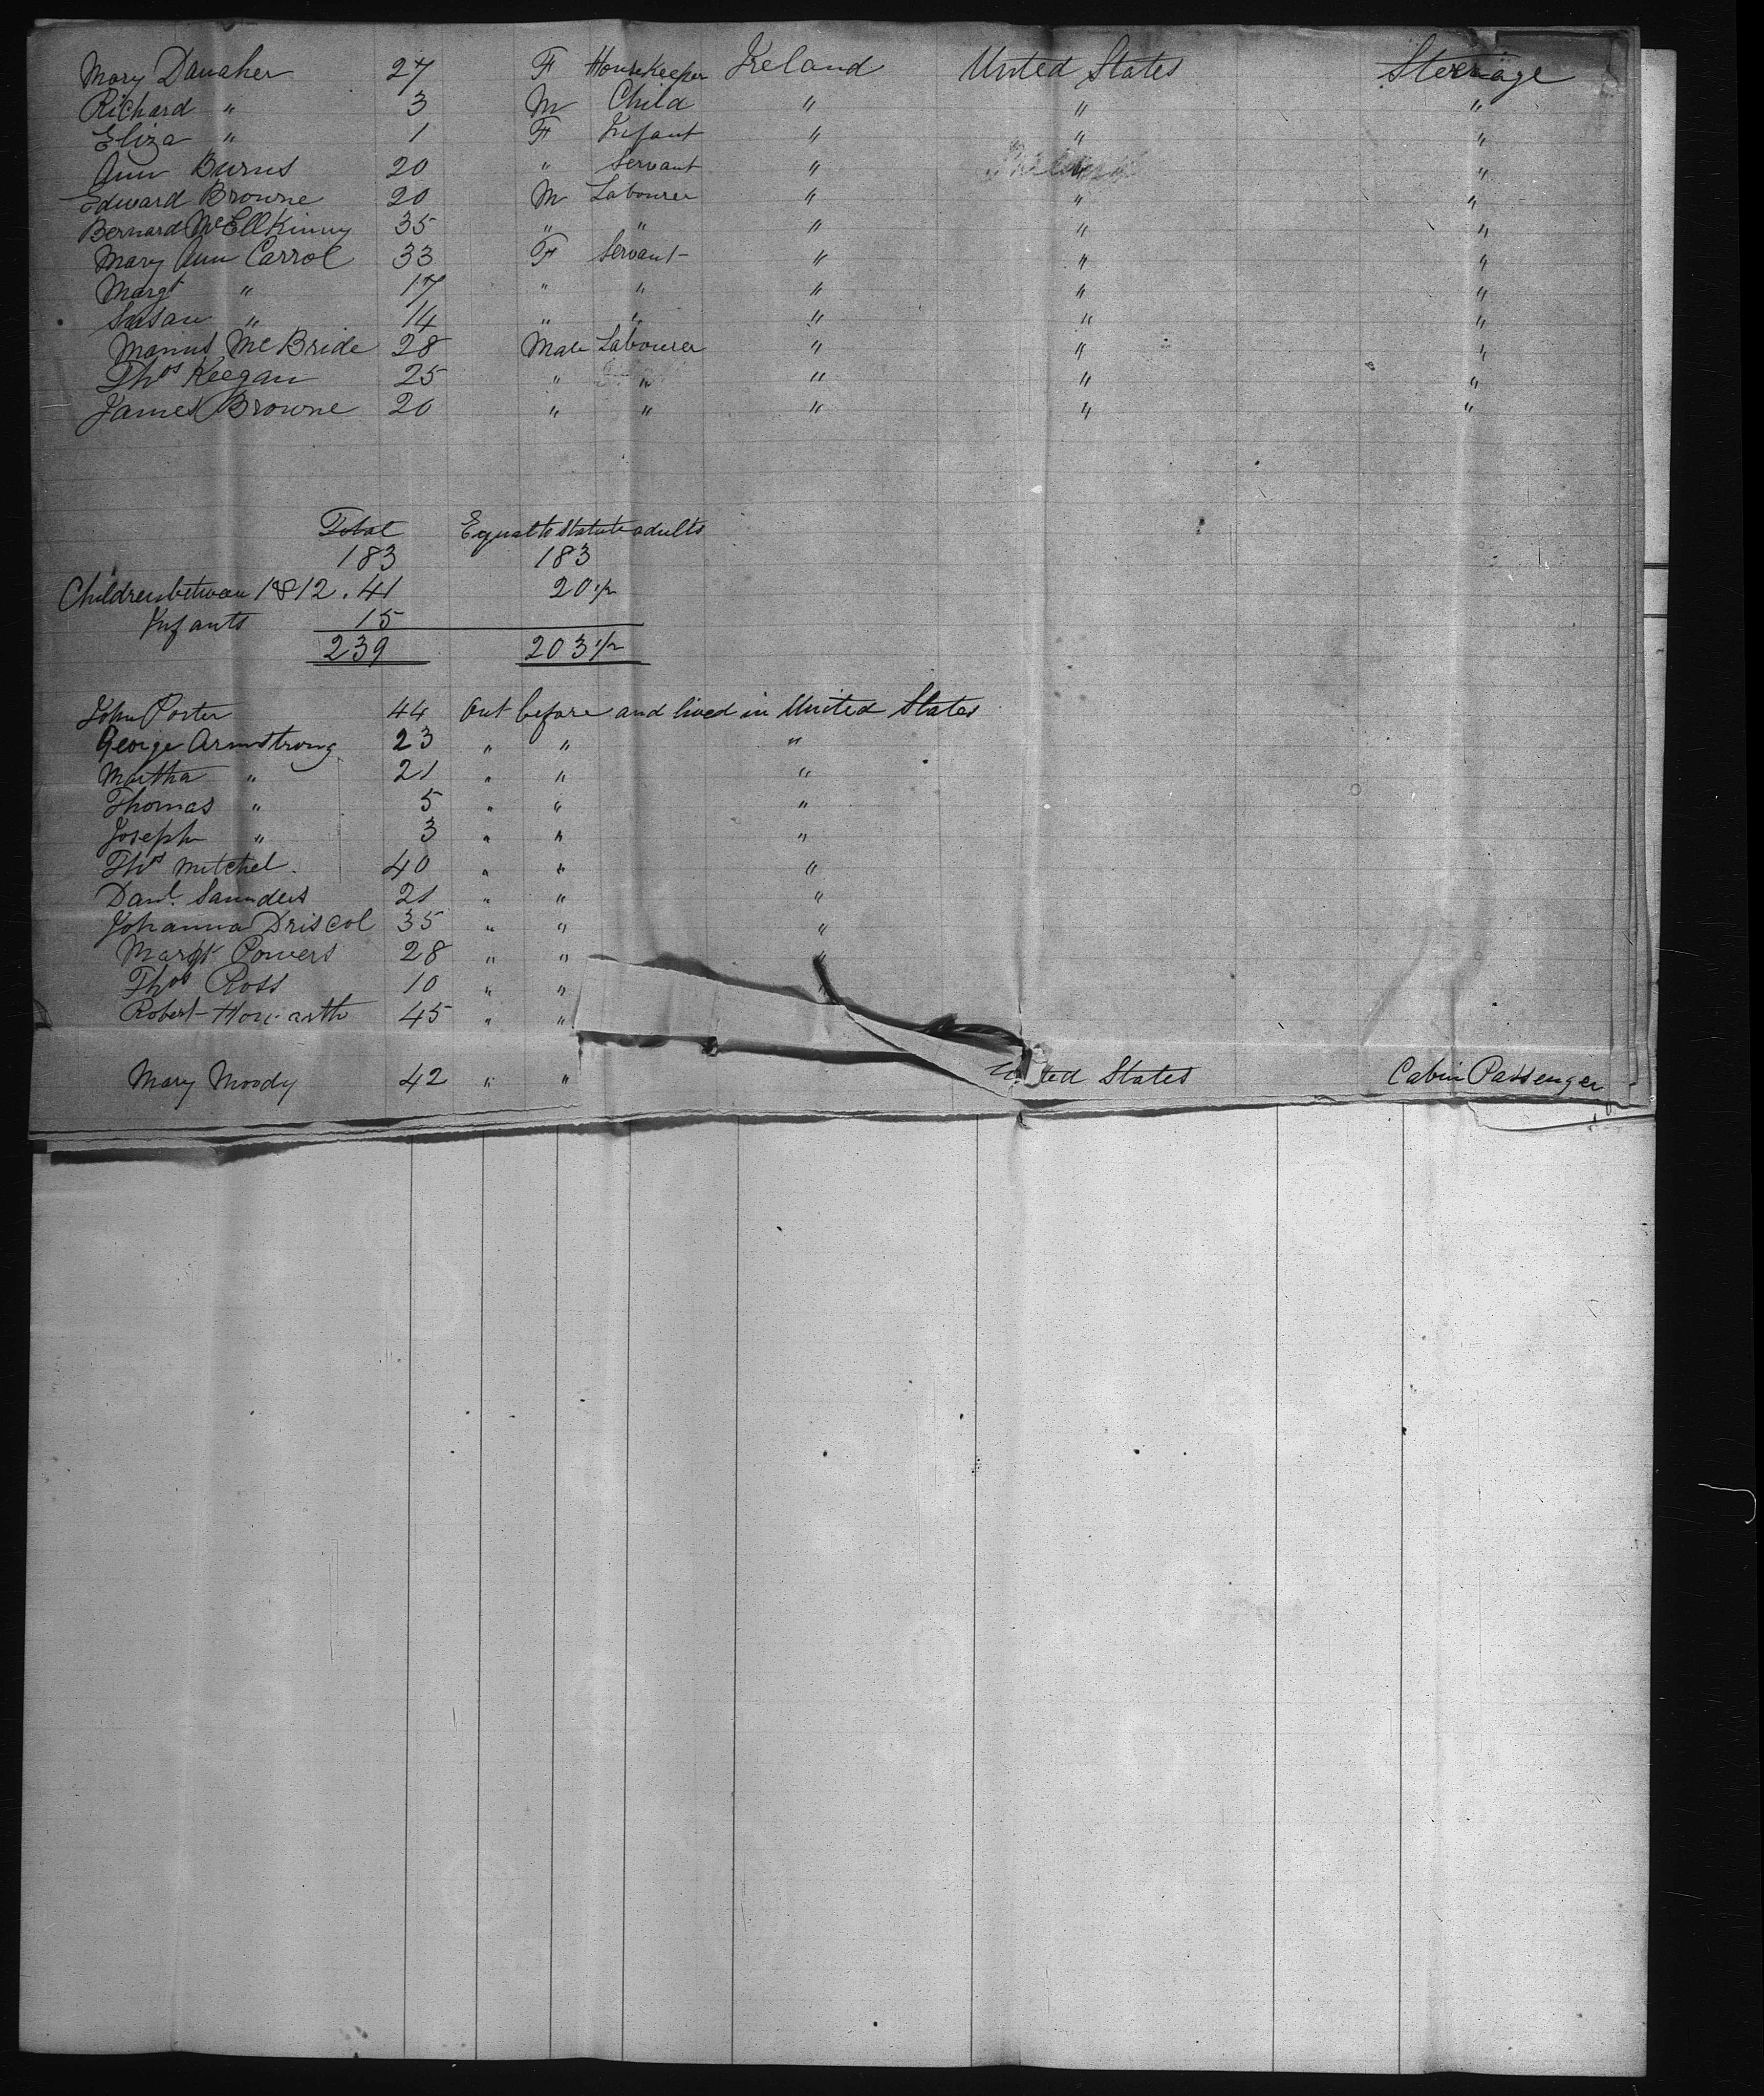 Mary Danaher 27 F Housekeeper Ireland United States Steerage
Richard " 3 M Child " " "
Eliza " 1 F Infant " " "
Ann Burns 20 " Servant " " "
Edward Browne 20 M Labourer " " "
Bernard McEllKinny 35 " " " " "
Mary Ann Carrol 33 F Servant " " "
Margt " 17 " " " " "
Susan " 14 " " " " "
Manus McBride 28 Male Labourer " " "
Thos Keegan 25 " " " " "
James Browne 20 " " " " "
Total Equal to Statute adults
183 183
Children between 1 & 12 . 41 20 1/2
Infants 15
239 203 1/2
John Porter 44 Out before and lived in United States
George Armstrong 23 " " "
Martha " 21 " " "
Thomas " 5 " " "
Joseph " 3 " " "
Thos Mitchel 40 " " "
Danl. Saunders 21 " " "
Johanna Driscol 35 " " "
Margt Powers 28 " " "
Thos Ross 10 " " "
Robert Howarth 45 " "
Mary Moody 42 " " United States Cabin Passenger